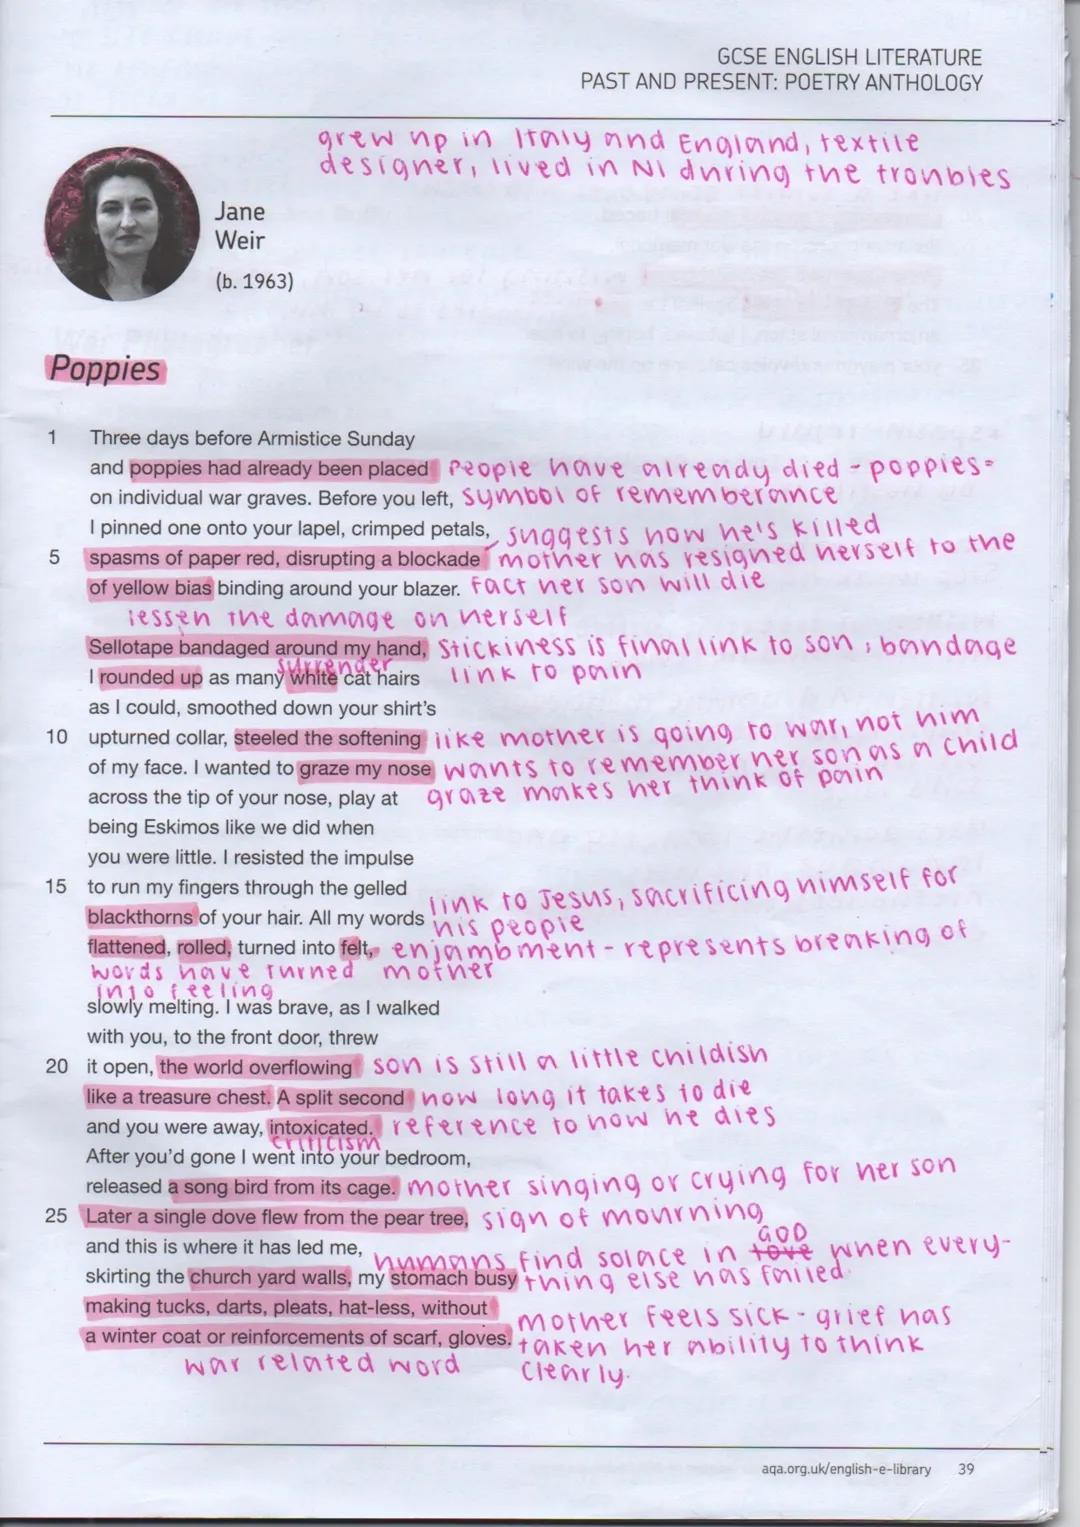 GCSE ENGLISH LITERATURE
PAST AND PRESENT: POETRY ANTHOLOGY
grew up in Italy and England, textile
designer, lived in NI during the troubles
Jane
Weir
(b. 1963)
Poppies
1 Three days before Armistice Sunday
and poppies had already been placed People have already died - poppies=
on individual war graves. Before you left, symbol of rememberance
I pinned one onto your lapel, crimped petals, suggests how he's killed
5 spasms of paper red, disrupting a blockade mother has resigned herself to the
of yellow bias binding around your blazer. fact her son will die
lessen the damage on herself
Sellotape bandaged around my hand, Stickiness is final link to son, bandage
surrender
I rounded up as many white cat hairs link to pain
as I could, smoothed down your shirt's
10 upturned collar, steeled the softening like mother is going to war, not him
of my face. I wanted to graze my nose wants to remember her son as a child
across the tip of your nose, play at graze makes her think of pain
being Eskimos like we did when
you were little. I resisted the impulse
15 to run my fingers through the gelled
link to Jesus, sacrificing himself for
blackthorns of your hair. All my words his people
flattened, rolled, turned into felt, enjambment - represents breaking of
words have turned mother
into feeling
slowly melting. I was brave, as I walked
with you, to the front door, threw
20 it open, the world overflowing son is still a little childish
like a treasure chest. A split second how long it takes to die
and you were away, intoxicated. reference to how he dies
criticism
After you'd gone I went into your bedroom,
released a song bird from its cage. mother singing or crying for her son
25 Later a single dove flew from the pear tree, sign of mourning
GOD
and this is where it has led me, humans find solace in love when every-
skirting the church yard walls, my stomach busy thing else has failed.
making tucks, darts, pleats, hat-less, without mother feels sick - grief has
a winter coat or reinforcements of scarf, gloves. taken her ability to think
war related word clearly.
aqa.org.uk/english-e-library 39